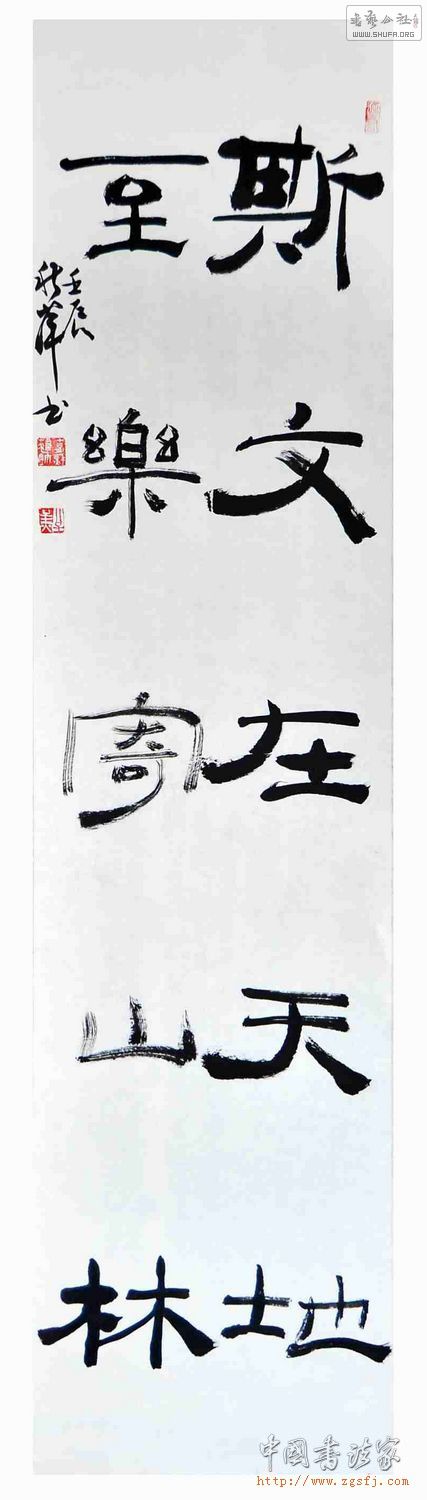 斯文在天地
至樂寄山林
壬辰
書藝公社
WWW.SHUFA.ORG
中国书法家
http://www.zgsfj.com